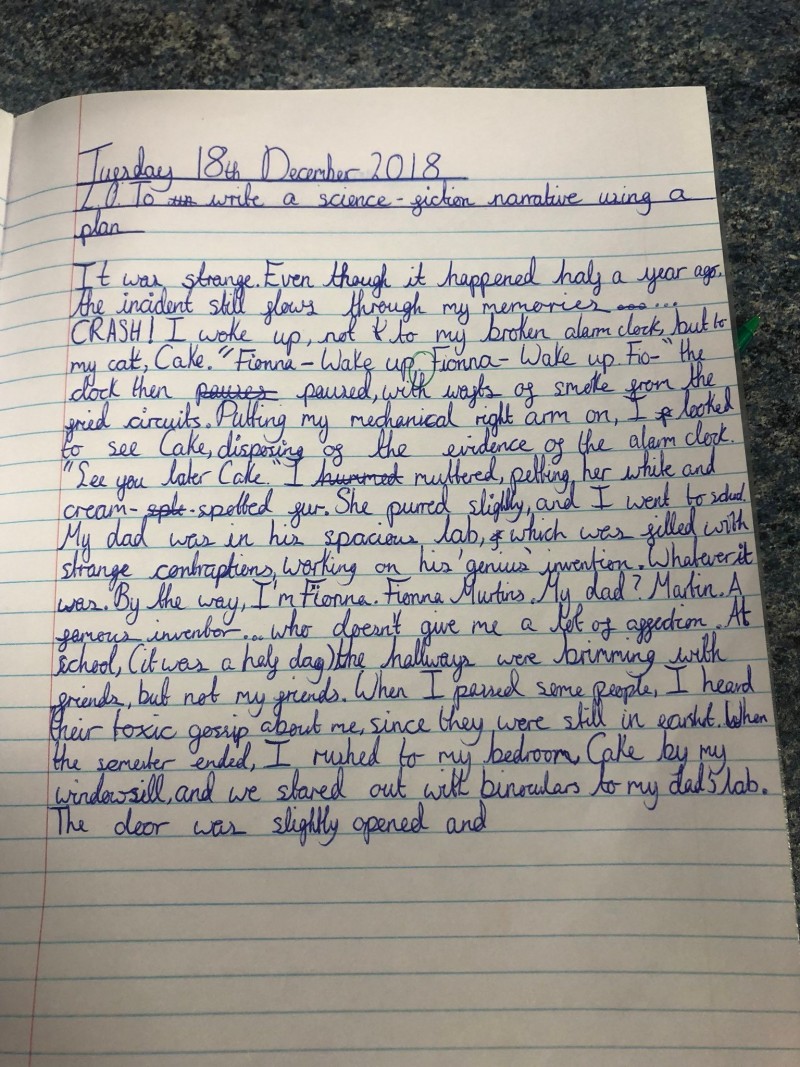 Tuesday 18th December 2018
L.O. To write a science-fiction narrative using a
plan
It was strange. Even though it happened half a year ago.
the incident still flows through my memories.......
CRASH! I woke up, not to my broken alarm clock, but to
my cat, Cake. "Fionna - Wake up, Fionna - Wake up. Fio-" the
clock then pauses paused, with wafts of smoke from the
fried circuits. Putting my mechanical right arm on, I looked
to see Cake, disposing of the evidence of the alarm clock.
"See you later Cake." I hummed muttered, petting, her white and
cream- spk -spotted fur. She purred slightly, and I went to school.
My dad was in his spacious lab, which was filled with
strange contraptions, working on his 'genius' invention. Whatever it
was. By the way, I'm Fionna. Fionna Murtins. My dad? Martin. A
famous inventor... who doesn't give me a lot of affection. At
school, (it was a half day) the hallways were brimming with
friends, but not my friends. When I passed some people, I heard
their toxic gossip about me, since they were still in earshot. When
the semester ended, I rushed to my bedroom, Cake by my
windowsill, and we stared out with binoculars to my dad's lab.
The door was slightly opened and